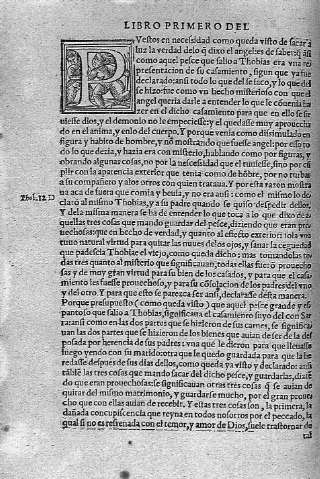 LIBRO PRIMERO DEL
PVestos en necesidad como queda visto de sacar a
luz la verdad de lo q̃ dixo el angel: es de saber q̃ assi
como aquel pesce que salio a Thobias era vna re
presentacion de su casamiento, segun que ya fue
declarado: ansi todo lo que del pesce, y se
se hizo fue como vn hecho misterioso con que el
angel queria darle a entender lo que le cõuenia ha
zer en el dicho casamiento para que en ello se sir
uiesse dios, y el demonio no le empeciesse: y el quedasse muy aprouecha
do en el anima, y en lo del cuerpo. Y porque venia como dissimulado en
figura y habito de hombre, y no mostrando que fuesse angel: por esso to
do lo que dezia, y hazia era con misterio, hablando como por figuras, y
obrando algunas cosas, no por la necessidad que el tuuiesse, sino por cũ
plir con la aparencia exterior que tenia como de hõbre, por no turbar
a su compañero y a los otros con quien trataua. Y por esta razon mostra
ua aca de fuera que comia y beuia, y no era ansi: como el mismo lo de
Thob. 12 D
claro al mismo Thobias, y a su padre quando se quiso despedir dellos.
Y dela misma manera se ha de entender lo que toca a lo que dixo de a
quellas tres cosas que mando guardar del pesce, diziendo que eran pro
uechosas: que en hecho de verdad, y quanto al effecto exterior sola vir
tud natural para quitar las nuues delos ojos, y sanar la ceguedad
que padescia Thobias el viejo, como queda dicho: mas tomandolas to
das tres quanto al misterio que significauan, todas ellas fuerõ prouecho
sas y de muy gran virtud para su bien de los casados, y para que el casa
miento les fuesse prouechoso, y para su cõsolacion de los padres del vno
y del otro. Y para que esto se parezca ser ansi, declarase desta manera.
Porque presupuesto (como queda visto) que aquel pesce grande y es-
pantoso que salio a Thobias, significaua el casamiento suyo del con Sar
ra: ansi como en las dos partes que se hizieron de sus carnes, se significa
uan las dos partes que se hizieron de los bienes que auian de ser de la des
posada por herencia de sus padres: vna que le dieron para que lleuasse
luego yendo con su marido: otra que le quedo guardada para que la he
redasse despues de sus dias dellos, como queda ya visto y declarado: ansi
tãbiẽ las tres cosas que mando sacar del dicho pesce, y guardarlas, dizien
do que eran prouechosas: se significauan otras tres cosas q̃ se auian de
quitar del mismo matrimonio, y guardarse mucho, por el gran proue
cho que con ellas auian de recebir. Y estas tres cosas son, la primera, la
dañada concupiscencia que reyna en todos nosotros por el peccado, la
qual si no es refrenada con el temor, y amor de Dios, suele trastornar de
tal